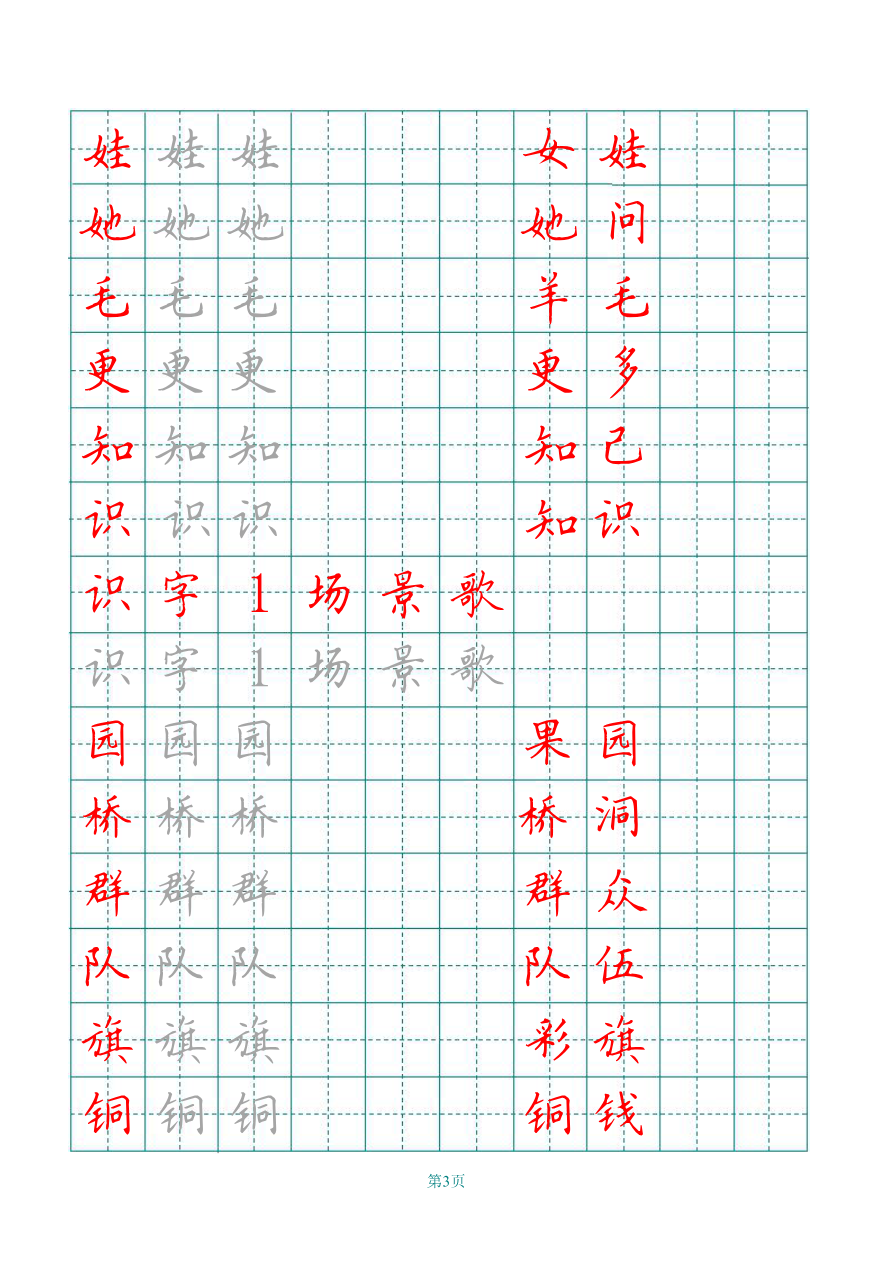 娃 娃 娃 女 娃
她 她 她 她 问
毛 毛 毛 羊 毛
更 更 更 更 多
知 知 知 知 己
识 识 识 知 识
识 字 1 场 景 歌
识 字 1 场 景 歌
园 园 园 果 园
桥 桥 桥 桥 洞
群 群 群 群 众
队 队 队 队 伍
旗 旗 旗 彩 旗
铜 铜 铜 铜 钱
第3页